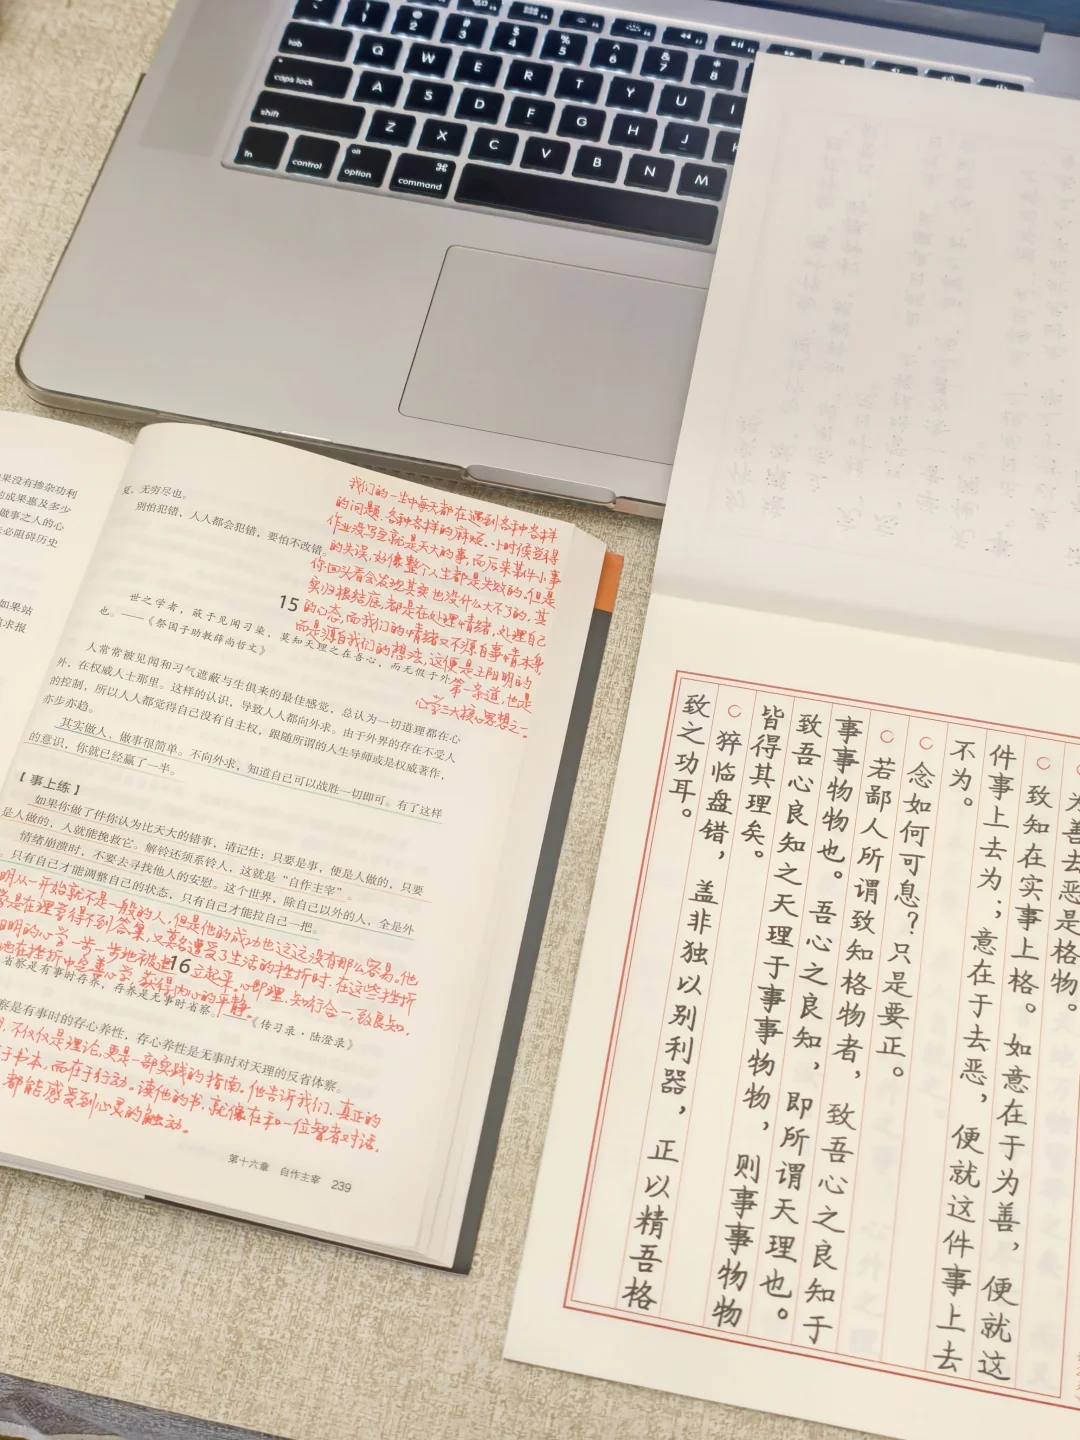 tab
caps lock
shift
fn
control
alt
option
⌘
command
Q W E R T Y U I
A S D F G H J
Z X C V B N M
果没有掺杂功利
的成果惠及多少
做事之人的心
必阻碍历史
如果站
求报
夏，无穷尽也。
别怕犯错，人人都会犯错，要怕不改错。
我们的一生中每天都在遇到各种各样
的问题、各种各样的麻烦、小时候觉得
作业没写完就是天大的事，而后来某件小事
的失误，好像整个人生都是失败的，但是
你回头看会发现其实也没什么大不了的，其
实归根结底，都是在处理情绪，处理自己
的心态，而我们的情绪又不源自事情本身，
而是源自我们的想法，这便是王阳明的
第一条道，也是
心学三大核心思想之一。
15
世之学者，蔽于见闻习染，莫知天理之在吾心，而无假于外
也。——《祭国子助教薛尚哲文》
人常常被见闻和习气遮蔽与生俱来的最佳感觉，总认为一切道理都在心
外，在权威人士那里。这样的认识，导致人人都向外求。由于外界的存在不受人
的控制，所以人人都觉得自己没有自主权，跟随所谓的人生导师或是权威著作，
亦步亦趋。
其实做人、做事很简单。不向外求，知道自己可以战胜一切即可。有了这样
的意识，你就已经赢了一半。
【事上练】
如果你做了件你认为比天大的错事，请记住：只要是事，便是人做的，只要
是人做的，人就能挽救它。解铃还须系铃人，这就是“自作主宰”。
情绪崩溃时，不要去寻找他人的安慰。这个世界，除自己以外的人，全是外
。只有自己才能调整自己的状态，只有自己才能拉自己一把。
明从一开始就不是一般的人，但是他的成功也远远没有那么容易，他
是在理学得不到答案，又莫名遭受了生活的挫折时，在这些挫折
阳明的心学一步一步地被建立起来。心即理、知行合一，致良知，
他在挫折中完善心学，获得内心的平静。
16
省察是有事时存养，存养是无事时省察。——《传习录·陆澄录》
察是有事时的存心养性，存心养性是无事时对天理的反省体察。
，不仅仅是理论，更是一部实践的指南。他告诉我们，真正的
于书本，而在于行动。读他的书，就像在和一位智者对话，
都能感受到心灵的触动。
第十六章 自作主宰 239
为善去恶是格物。
致知在实事上格。如意在于为善，便就这
件事上去为；意在于去恶，便就这件事上去
不为。
念如何可息？只是要正。
若鄙人所谓致知格物者，致吾心之良知于
事事物物也。吾心之良知，即所谓天理也。
致吾心良知之天理于事事物物，则事事物物
皆得其理矣。
猝临盘错，盖非独以别利器，正以精吾格
致之功耳。